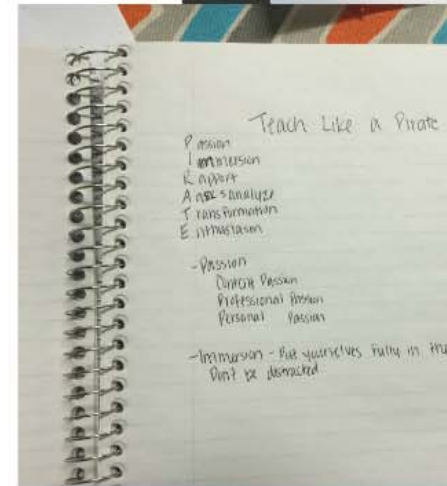 Teach Like a Pirate
Passion
Immersion
Rapport
Ask & analyze
Transformation
Enthusiasm
- Passion
Content Passion
Professional Passion
Personal Passion
- Immersion - Put yourselves fully in the
Don't be distracted